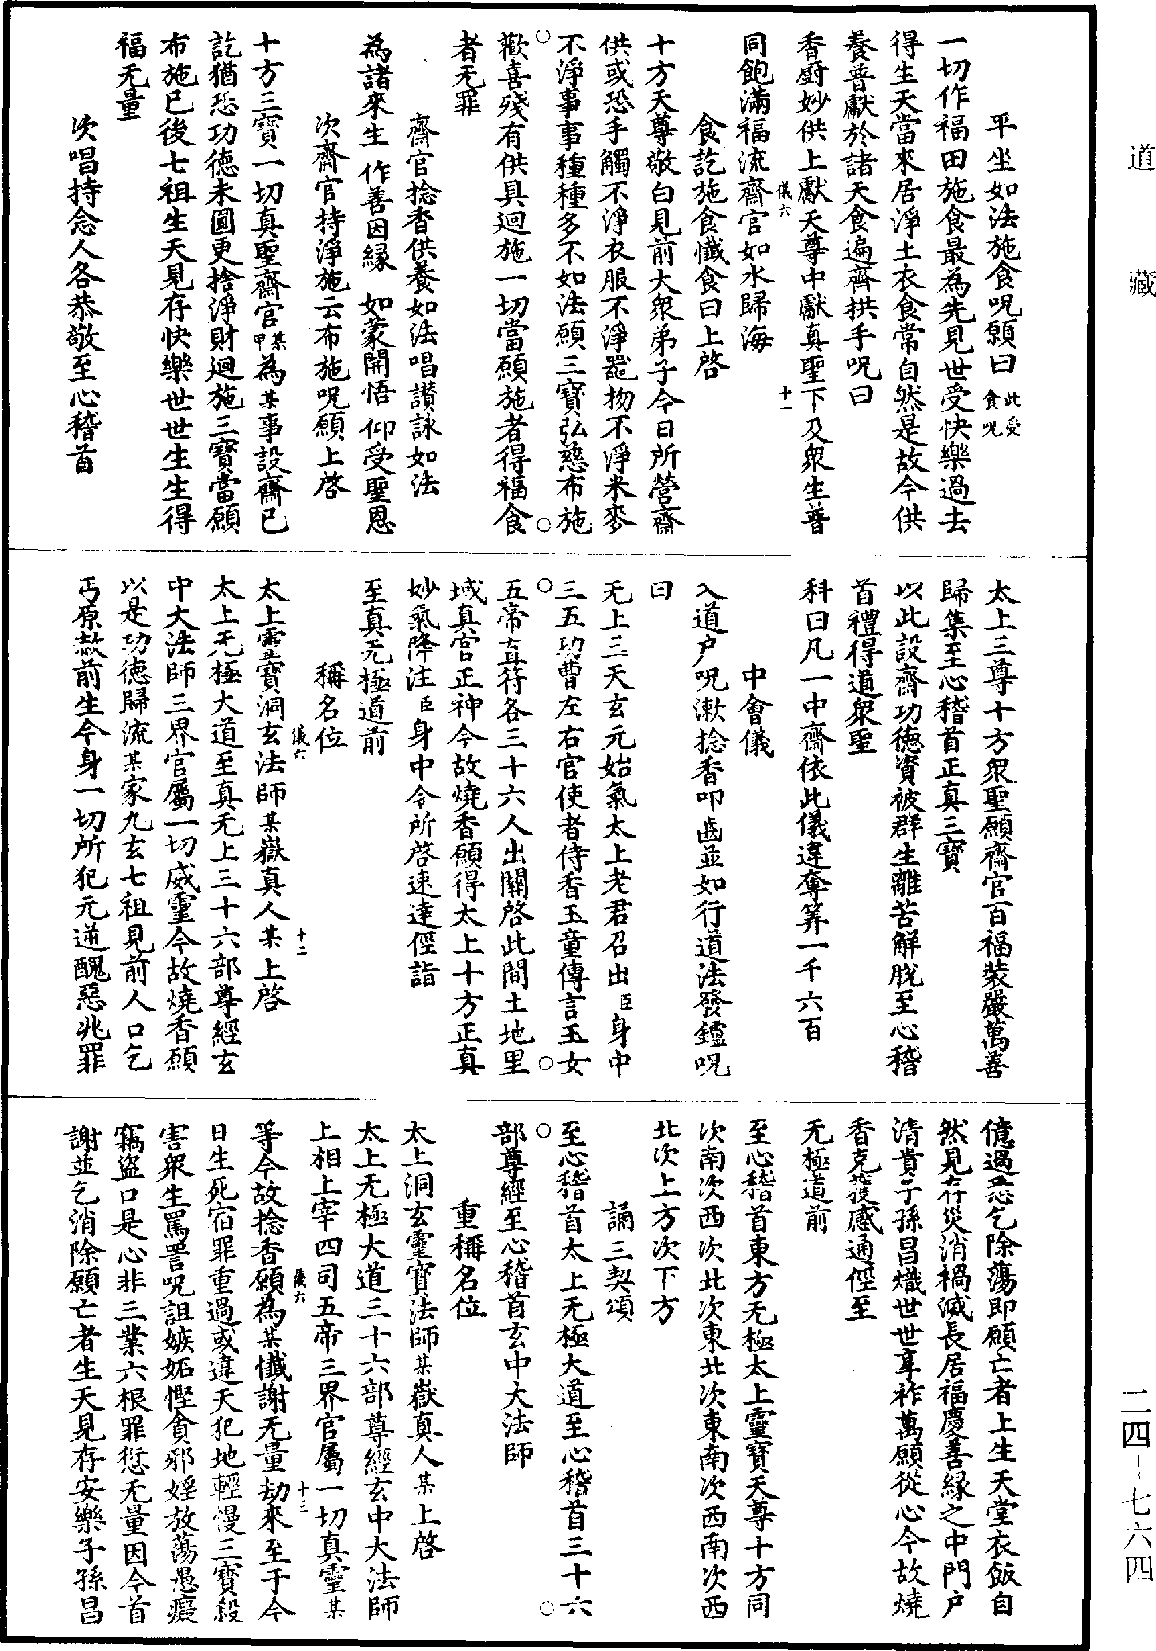 道藏
平坐如法施食呪願曰此受食呪
一切作福田施食最為先見世受快樂過去
得生天當來居淨土衣食常自然是故今供
養普獻於諸天食遍齊拱手呪曰
香厨妙供上獻天尊中獻真聖下及衆生普
儀六 十一
同飽滿福流齋官如水歸海
食訖施食懺食曰上啓
十方天尊敬白見前大衆弟子今日所營齋
供或恐手觸不淨衣服不淨噐物不淨米麥
不淨事事種種多不如法願三寶弘慈布施
歡喜殘有供具迴施一切當願施者得福食
者无罪
齋官捻香供養如法唱讃詠如法
為諸來生 作善因緣 如蒙開悟 仰受聖恩
次齋官持淨施云布施呪願上啓
十方三寶一切真聖齋官某甲為某事設齋已
訖猶恐功德未圓更捨淨財迴施三寶當願
布施已後七祖生天見存快樂世世生生得
福无量
次唱持念人各恭敬至心稽首
太上三尊十方衆聖願齋官百福裝嚴萬善
歸集至心稽首正真三寶
以此設齋功德資被群生離苦解脫至心稽
首禮得道衆聖
科曰凡一中齋依此儀違奪筭一千六百
中會儀
入道户呪漱捻香叩齒並如行道法發鑪呪
曰
无上三天玄元始氣太上老君召出臣身中
三五功曹左右官使者侍香玉童傳言玉女
五帝直符各三十六人出關啓此間土地里
域真官正神今故燒香願得太上十方正真
妙氣降注臣身中令所啓速達徑詣
至真无極道前
稱名位
儀六 十二
太上靈寶洞玄法師某嶽真人某上啓
太上无極大道至真无上三十六部尊經玄
中大法師三界官屬一切威靈今故燒香願
以是功德歸流某家九玄七祖見前人口乞
丐原赦前生今身一切所犯元逋醜惡兆罪
億過悉乞除蕩即願亡者上生天堂衣飯自
然見存災消禍滅長居福慶善緣之中門户
清貴子孫昌熾世世享祚萬願從心今故燒
香克獲感通徑至
无極道前
至心稽首東方无極太上靈寶天尊十方同
次南次西次北次東北次東南次西南次西
北次上方次下方
誦三契頌
至心稽首太上无極大道至心稽首三十六
部尊經至心稽首玄中大法師
重稱名位
太上洞玄靈寶法師某嶽真人某上啓
太上无極大道三十六部尊經玄中大法師
上相上宰四司五帝三界官屬一切真靈某
儀六 十三
等今故捻香願為某懺謝无量劫來至于今
日生死宿罪重過或違天犯地輕慢三寶殺
害衆生罵詈呪詛嫉妬慳貪邪婬放蕩愚癡
竊盜口是心非三業六根罪愆无量因今首
謝並乞消除願亡者生天見存安樂子孫昌
二四-七六四